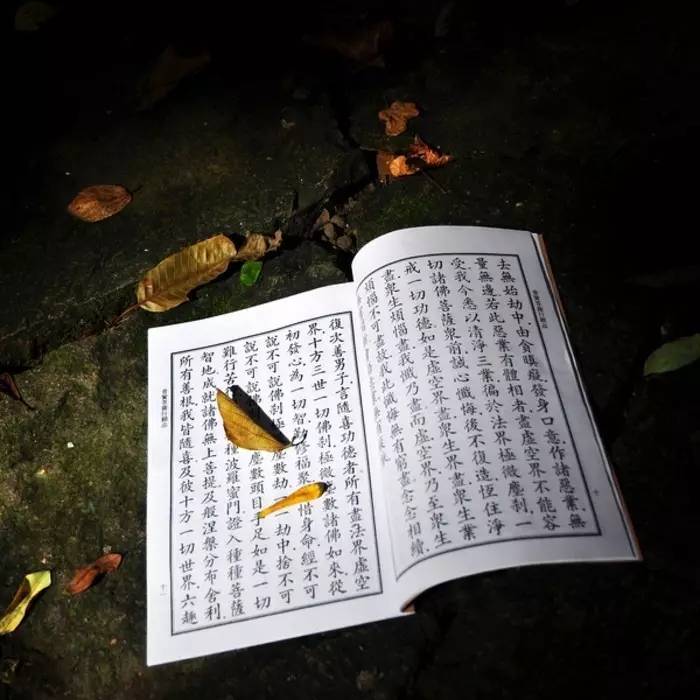 去無始劫中由貪瞋癡發身口意作諸惡業無
量無邊若此惡業有體相者盡虛空界不能容
受我今悉以清淨三業徧於法界極微塵剎一
切諸佛菩薩眾前誠心懺悔後不復造恆住淨
戒一切功德如是虛空界盡眾生界盡眾生業
盡眾生煩惱盡我懺乃盡而虛空界乃至眾生
煩惱不可盡故我此懺悔無有窮盡念念相續
十
復次善男子言隨喜功德者所有盡法界虛空
界十方三世一切佛剎極微塵數諸佛如來從
初發心為一切智勤修福聚惜身命經不可
說不可說佛剎極塵數劫一一劫中捨不可
說不可說佛塵數頭目手足如是一切
難行苦種波羅蜜門證入種種菩薩
智地成就諸佛無上菩提及般涅槃分布舍利
所有善根我皆隨喜及彼十方一切世界六趣
十一